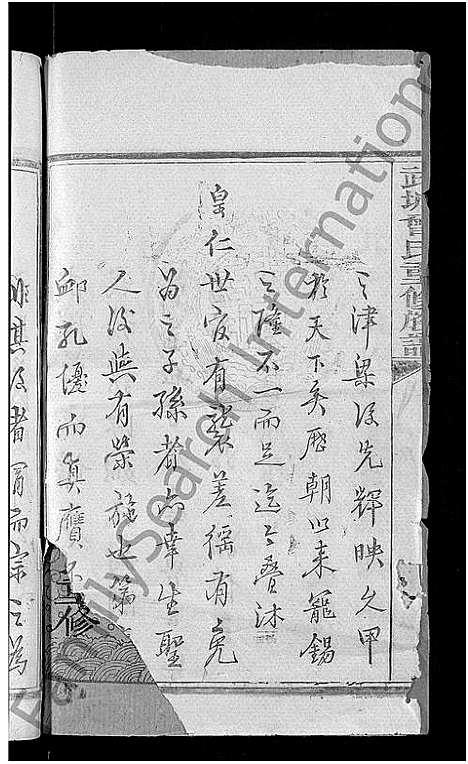 武城曾氏重修族譜
之津梁後先輝映久甲
於天下矣歷朝以來寵錫
之隆不一而足迄今疊沐
皇仁世官有襲差徭有免
為之子孫者亦幸生聖
人後與有榮施也第
卹孔優而真贋不
重修
非其後者冒而宗之為
FamilySearch International